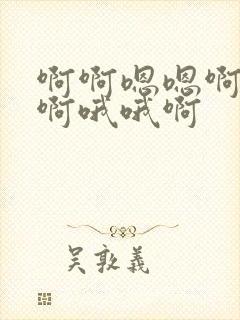 啊啊嗯嗯啊
啊哦哦啊
吴敦义